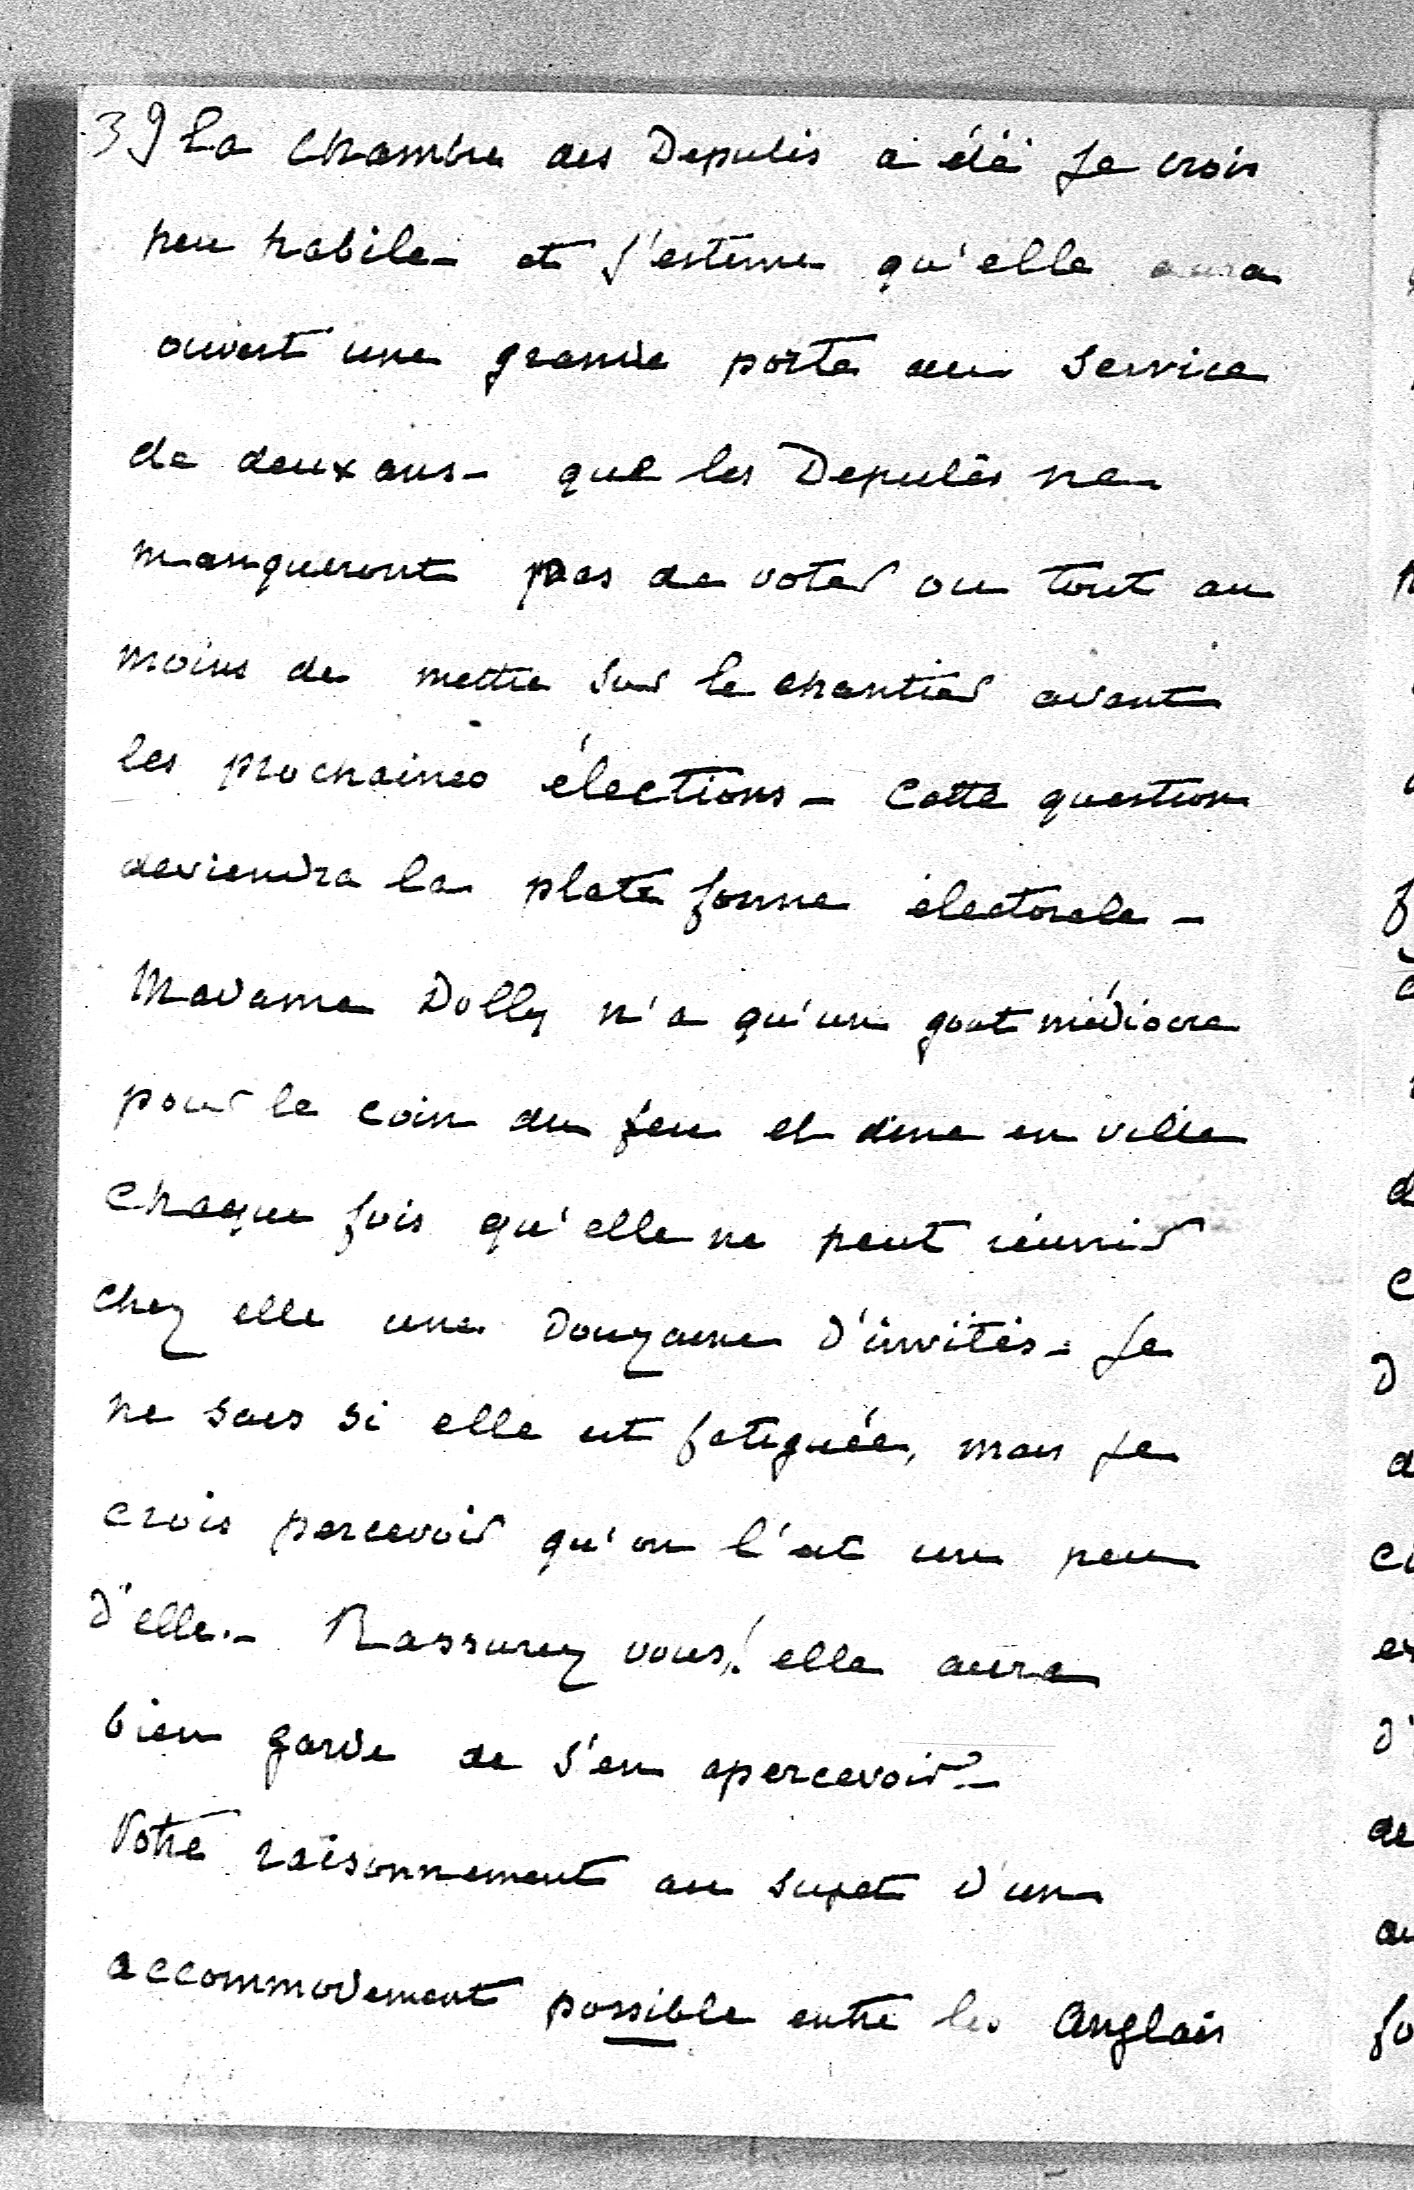 3) La Chambre des Deputés a été je crois
peu habile - et j'estime qu'elle aura
ouvert une grande porte au service
de deux ans - que les Deputés ne
manqueront pas de voter ou tout au
moins de mettre sur le chantier avant
les prochaines élections - Cette question
deviendra la plate forme électorale -
Madame Dolly n'a qu'un gout médiocre
pour le coin du feu et dine en ville
chaque fois qu'elle ne peut réunir
chez elle une douzaine d'invités - Je
ne sais si elle est fatiguée, mais je
crois percevoir qu'on l'est un peu
d'elle. - Rassurez vous! elle aura
bien garde de s'en apercevoir -
Votre raisonnement au sujet d'un
accommodement possible entre les Anglais